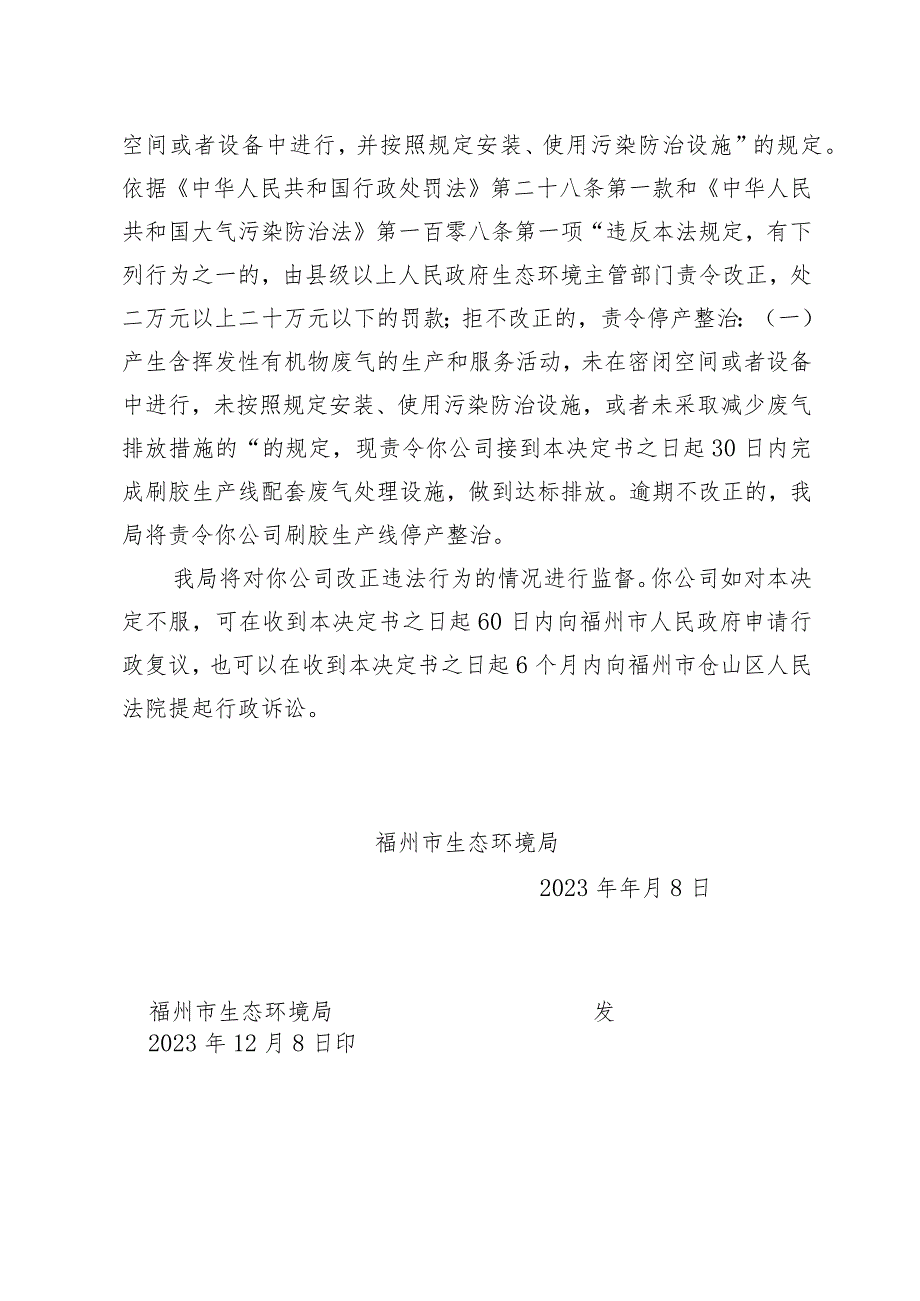 空间或者设备中进行，并按照规定安装、使用污染防治设施”的规定。
依据《中华人民共和国行政处罚法》第二十八条第一款和《中华人民
共和国大气污染防治法》第一百零八条第一项“违反本法规定，有下
列行为之一的，由县级以上人民政府生态环境主管部门责令改正，处
二万元以上二十万元以下的罚款；拒不改正的，责令停产整治：（一）
产生含挥发性有机物废气的生产和服务活动，未在密闭空间或者设备
中进行，未按照规定安装、使用污染防治设施，或者未采取减少废气
排放措施的“的规定，现责令你公司接到本决定书之日起30日内完
成刷胶生产线配套废气处理设施，做到达标排放。逾期不改正的，我
局将责令你公司刷胶生产线停产整治。
我局将对你公司改正违法行为的情况进行监督。你公司如对本决
定不服，可在收到本决定书之日起60日内向福州市人民政府申请行
政复议，也可以在收到本决定书之日起6个月内向福州市仓山区人民
法院提起行政诉讼。
福州市生态环境局
2023年年月8日
福州市生态环境局 发
2023年12月8日印